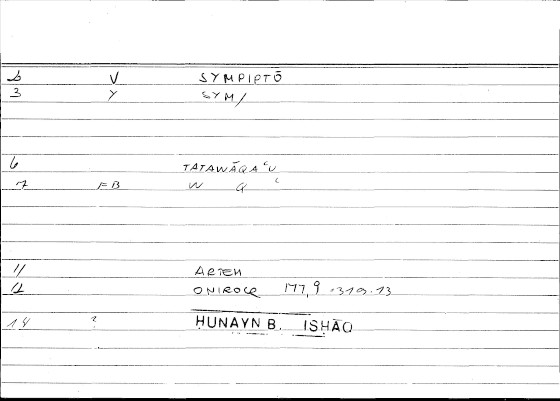 2 V SYMPIPTŌ
3 Y SYM/
6 TATAWĀQAʿU
7 FB W Q ʿ
11 ARTEM
12 ONIROCR 177,9 - 319.13
14 ? HUNAYN B. ISḤĀQ